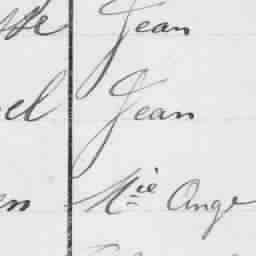 Jean
el Jean
en Mie Ange